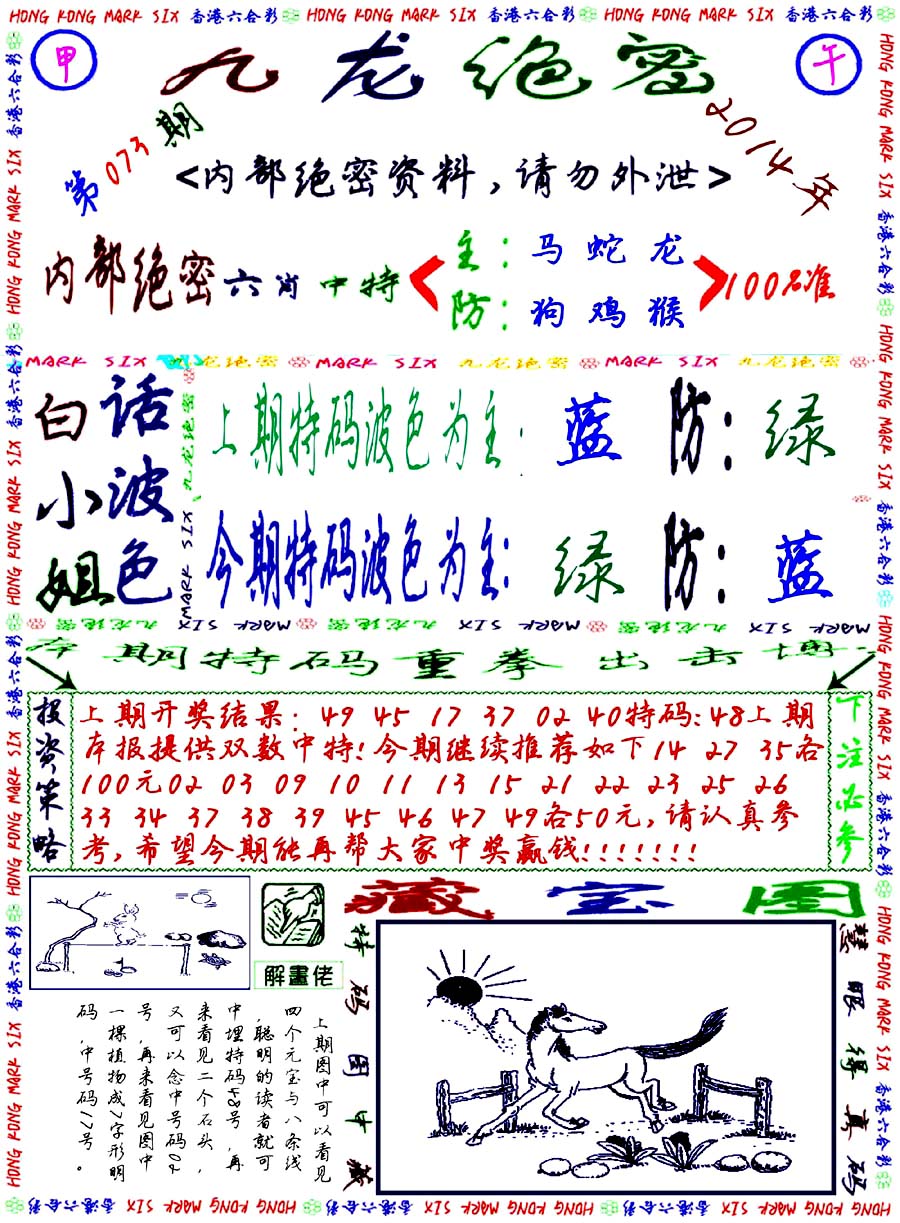 HONG KONG MARK SIX 香港六合彩 HONG KONG MARK SIX 香港六合彩 HONG KONG MARK SIX 香港六合彩
甲 九龙绝密 午
第073期 2014年
<内部绝密资料,请勿外泄>
内部绝密六肖中特
主:马蛇龙
防:狗鸡猴
100%准
MARK SIX 九龙绝密 MARK SIX 九龙绝密 MARK SIX 九龙绝密
白话小姐波色
上期特码波色为主:蓝 防:绿
今期特码波色为主:绿 防:蓝
九龙绝密 MARK SIX 九龙绝密 MARK SIX 九龙绝密 MARK SIX
本期特码重拳出击博
投资策略
上期开奖结果:49 45 17 37 02 40特码:48上期
本报提供双数中特!今期继续推荐如下14 27 35各
100元02 03 09 10 11 13 15 21 22 23 25 26
33 34 37 38 39 45 46 47 49各50元,请认真参
考,希望今期能再帮大家中奖赢钱!!!!!!!
下注必参
藏宝图
解畫佬
特码图中藏
慧眼得真码
上期图中可以看见
四个元宝与八条线
,聪明的读者就可
中埋特码48号,再
来看见二个石头,
又可以念中号码02
号,再来看见图中
一棵植物成7字形明
码,中号码17号。
HONG KONG MARK SIX 香港六合彩 HONG KONG MARK SIX 香港六合彩 HONG KONG MARK SIX 香港六合彩